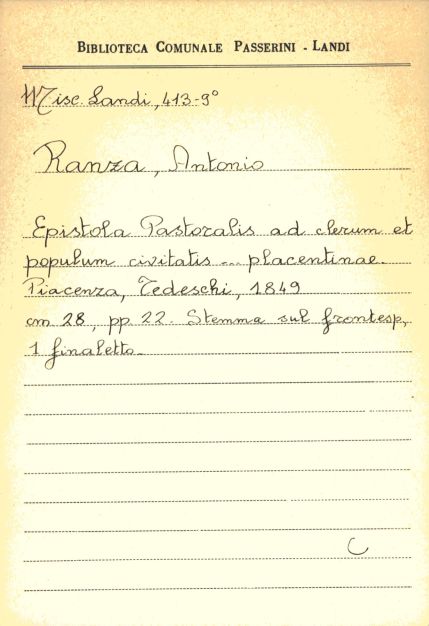 BIBLIOTECA COMUNALE PASSERINI - LANDI
Misc. Landi, 413-9°
Ranza, Antonio
Epistola Pastoralis ad clerum et
populum civitatis ... placentinae.
Piacenza, Tedeschi, 1849
cm 28, pp. 22. Stemma sul frontesp,
1 finaletto.
C